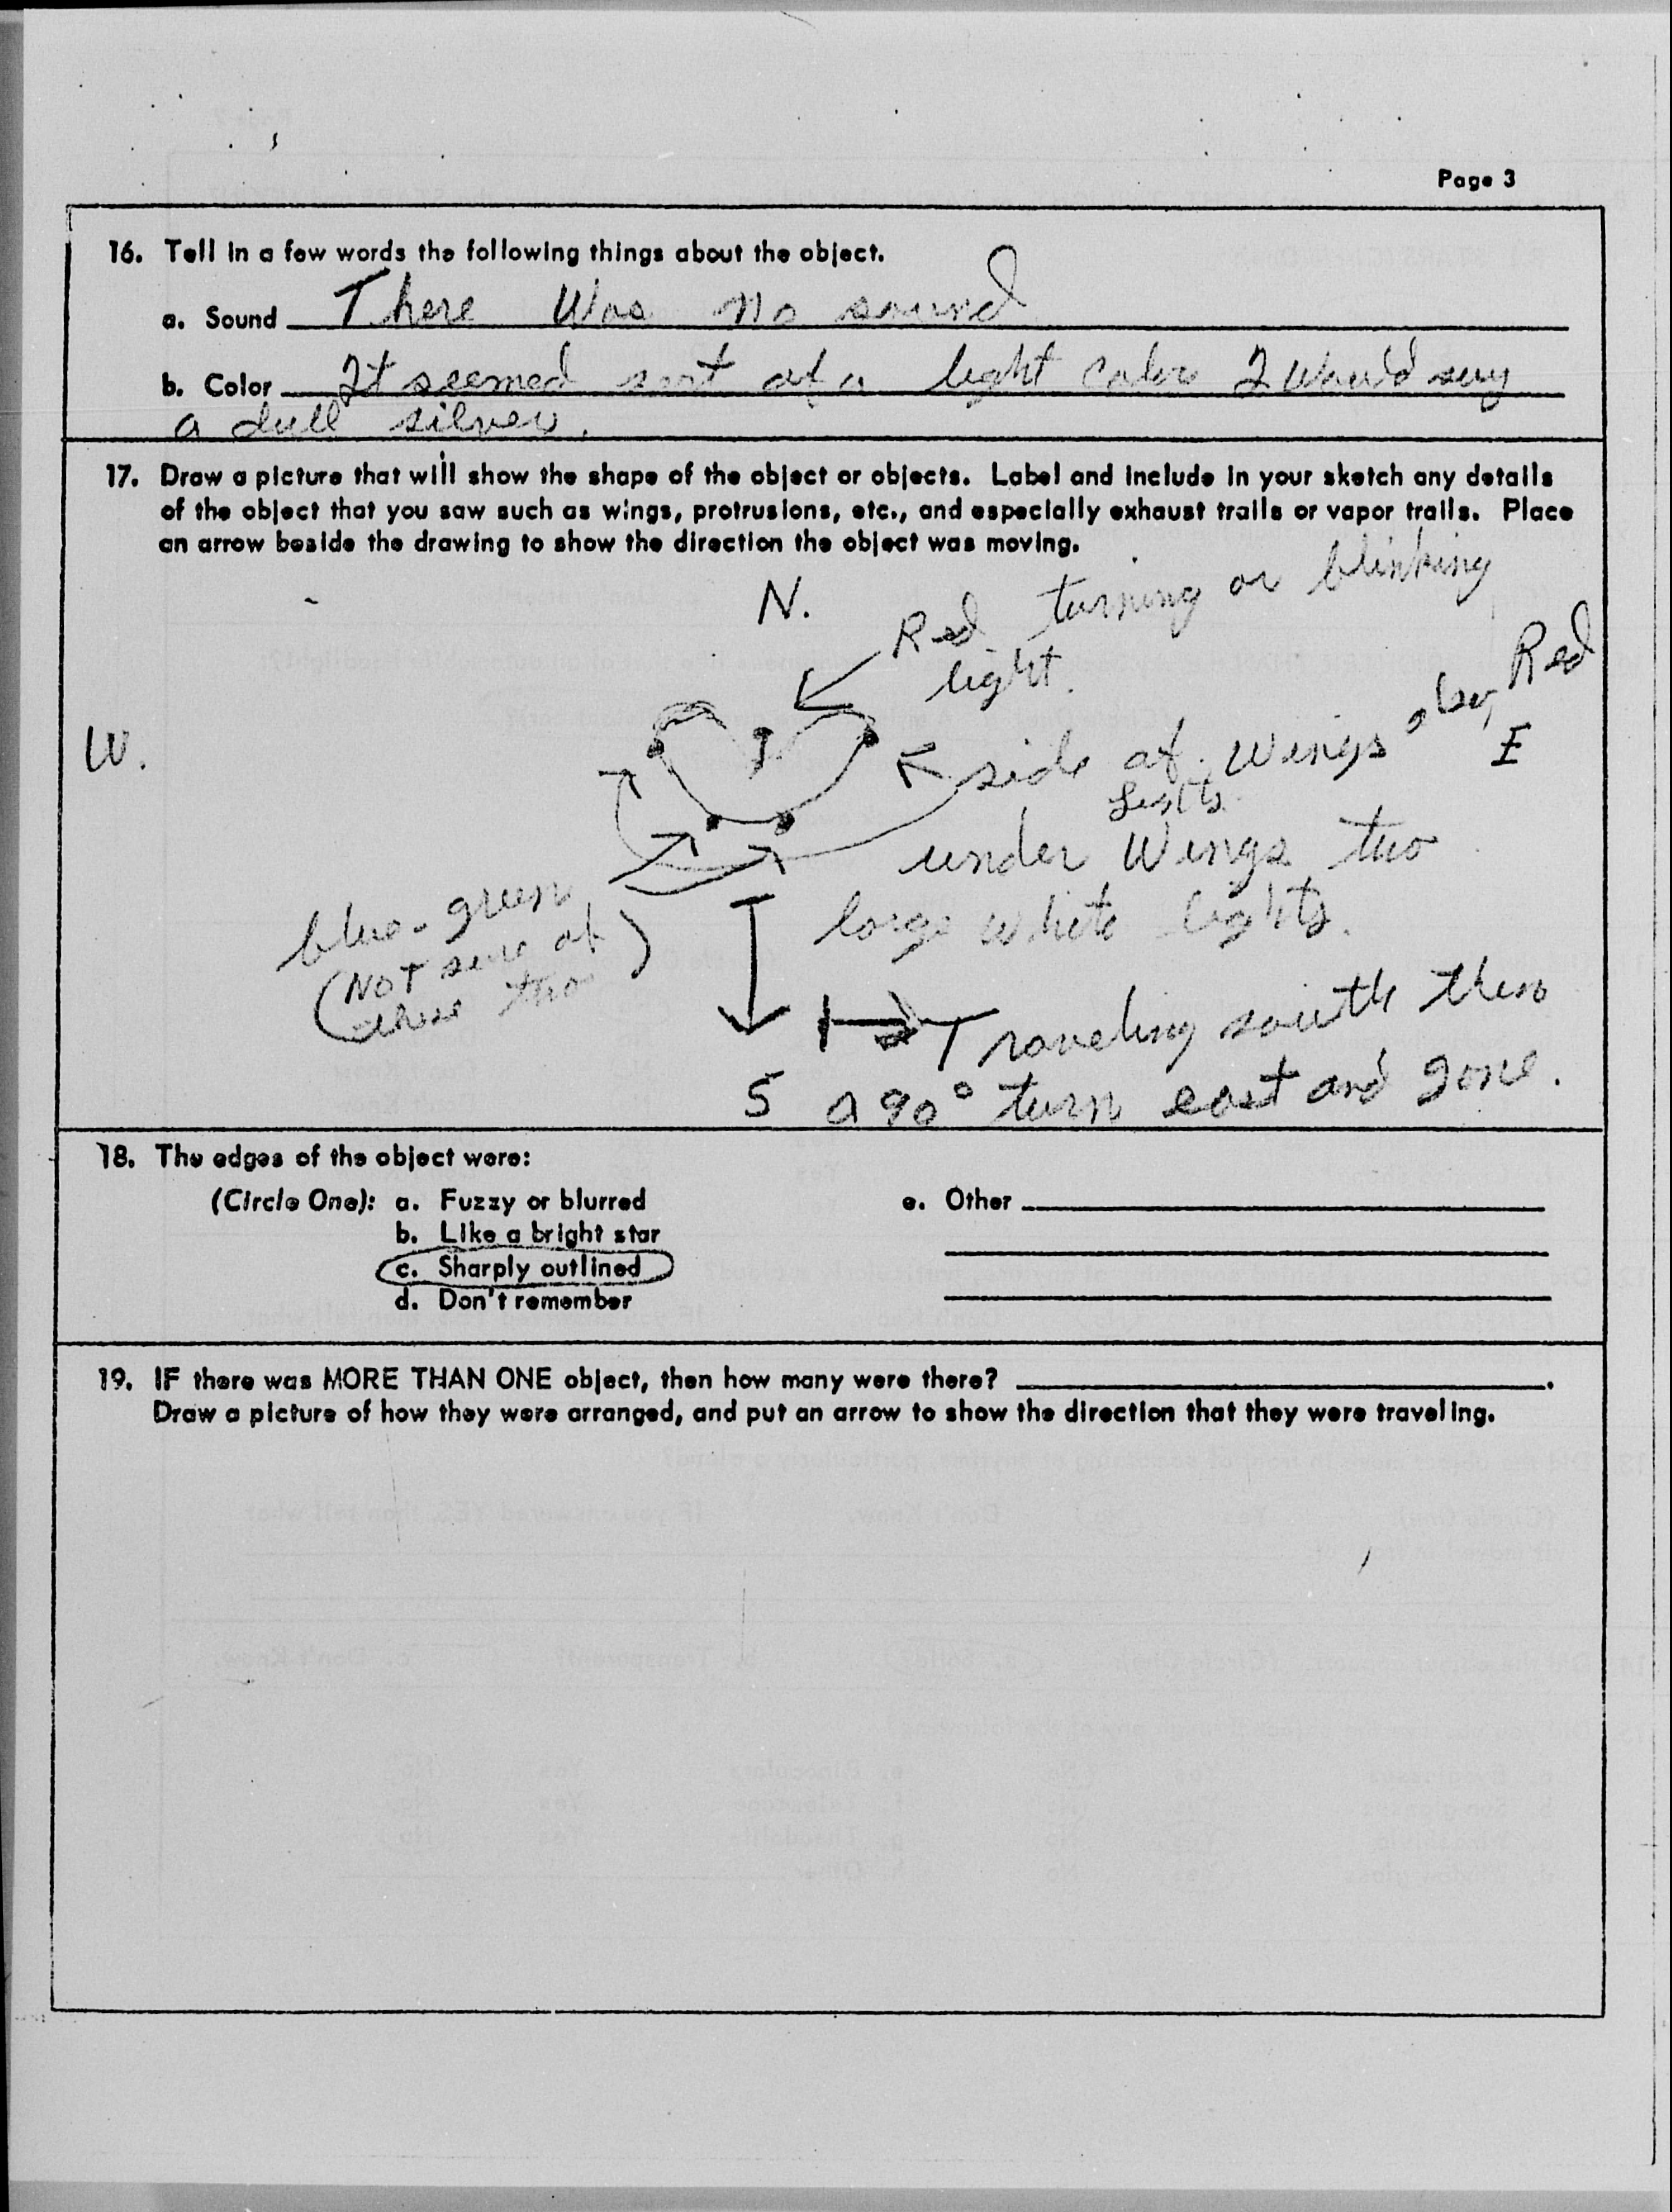 Page 3
16. Tell in a few words the following things about the object.
a. Sound There Was no sound
b. Color It seemed sort of a light color I would say
a dull silver.
17. Draw a picture that will show the shape of the object or objects. Label and include in your sketch any details
of the object that you saw such as wings, protrusions, etc., and especially exhaust trails or vapor trails. Place
an arrow beside the drawing to show the direction the object was moving.
N.
Red turning or blinking
light.
W.
side of wings also Red
E
Lights
under Wings two
large white lights.
blue-green
(NOT sure of
these two)
Traveling south then
S a 90° turn east and gone.
18. The edges of the object were:
(Circle One): a. Fuzzy or blurred
b. Like a bright star
c. Sharply outlined
d. Don't remember
e. Other
19. IF there was MORE THAN ONE object, then how many were there?
Draw a picture of how they were arranged, and put an arrow to show the direction that they were traveling.